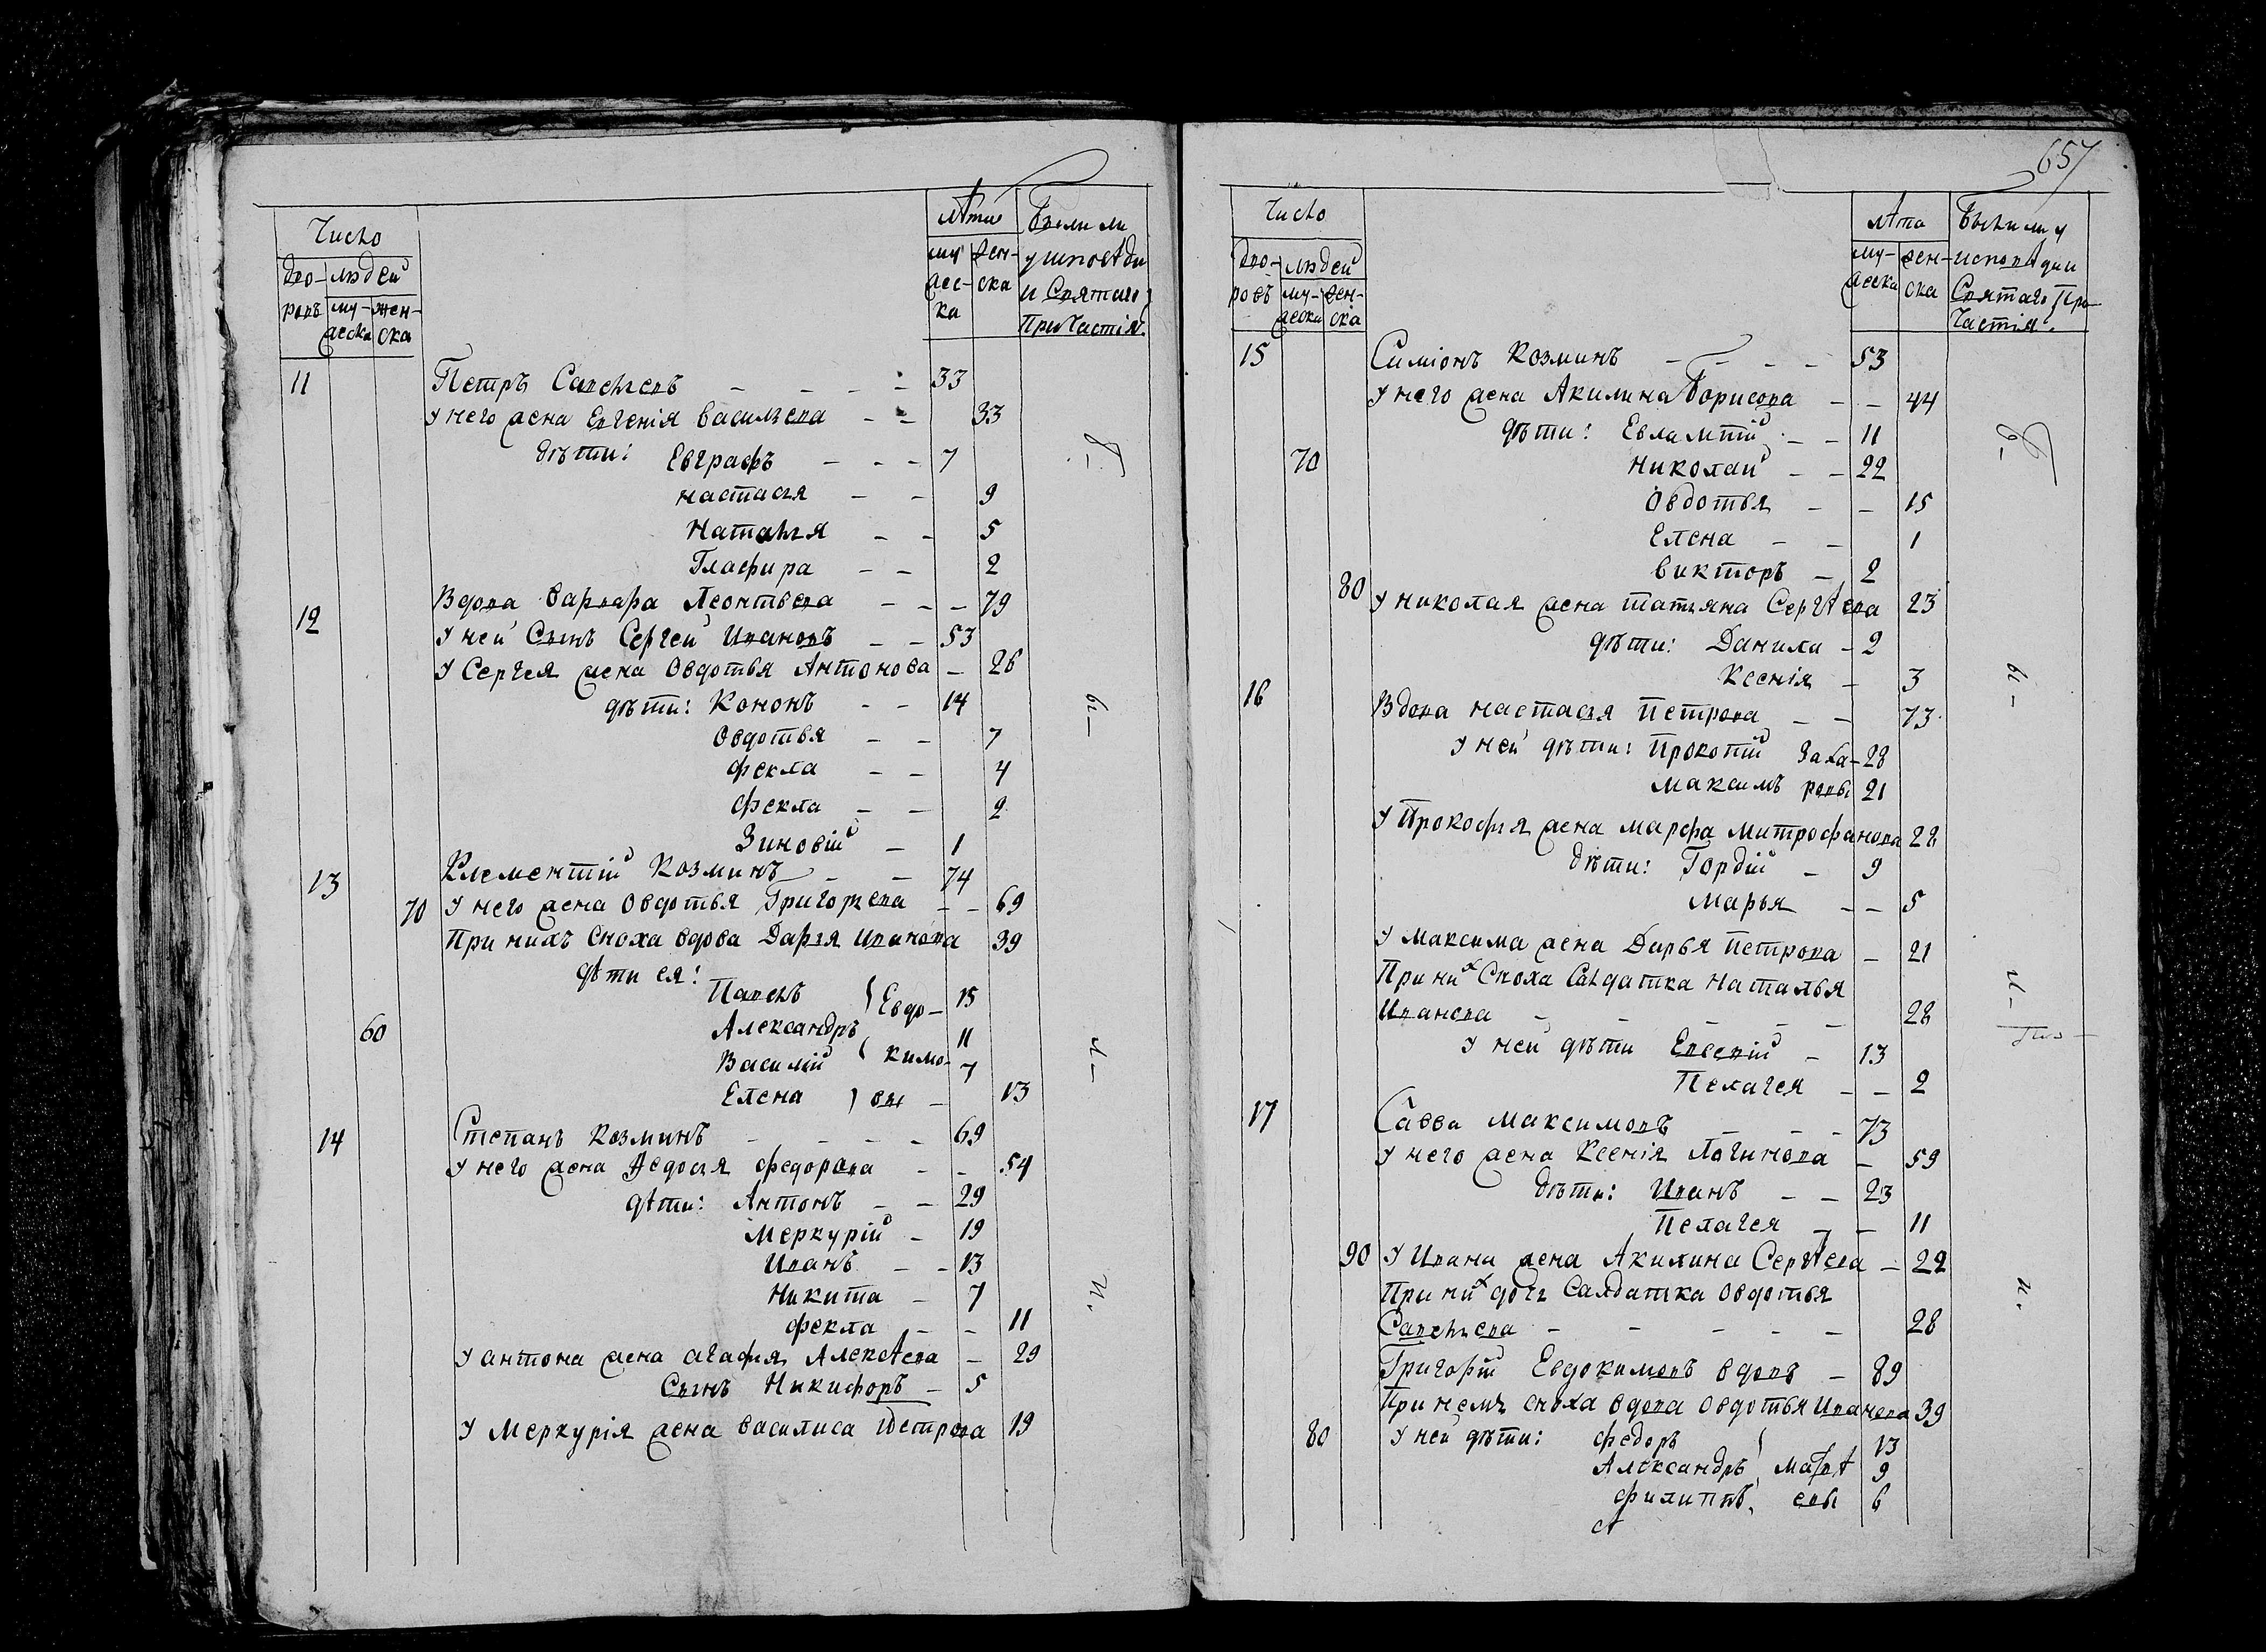 Число
Дво- людей
ровъ му- жен-
жеска ска
лѣта
му жен-
жес- ска
ка
Были ли
у исповѣди
и Святаго
Причастія.
11 Петръ Савельевъ 33
у него жена Евгенія Васильева 33
дѣти: Евграфъ 7
Настасья 9
Наталья 5
Глафира 2
12 Вдова Варвара Леонтьева 79
У ней Сынъ Сергей Ивановъ 53
У Сергея жена Овдотья Антонова 26
дѣти: Кононъ 14
Овдотья 7
Фекла 4
Фекла 2
Зиновій 1
13 Клементій Козминъ 74
70 У него жена Овдотья Григорьева 69
При нихъ сноха вдова Дарья Иванова 39
дѣти ея:
Павелъ Евдо- 15
60 Александръ 11
Василій кимо- 7
Елена вы 13
14 Степанъ Козминъ 69
У него жена Федосья Федорова 54
дѣти: Антонъ 29
Меркурій 19
Иванъ 13
Никита 7
Фекла 11
У Антона жена Агафья Алексѣева 29
Сынъ Никифоръ 5
У Меркурія жена Василиса Петрова 19
657
Число
Дво- людей
ровъ му- жен-
жеска ска
лѣта
му- жен-
жеска ска
Были ли у
исповѣди
Святаго При-
частія.
15 Симіонъ Козминъ 53
У него жена Акилина Борисова 44
дѣти: Евлампій 11
70 Николай 22
Овдотья 15
Елена 1
Викторъ 2
80 У Николая жена Татьяна Сергѣева 23
дѣти: Данила 2
Ксенія 3
16 Вдова Настасья Петрова 73
У ней дѣти: Прокопій Заха- 28
Максимъ ровы 21
У Прокофья жена Марфа Митрофанова 28
дѣти: Гордій 9
Марья 5
У Максима жена Дарья Петрова 21
При них Сноха Салдатка Наталья
Иванова 28
У ней дѣти Евсевій 13
Пелагея 2
17 Савва Максимовъ 73
У него жена Ксенія Логинова 59
дѣти: Иванъ 23
Пелагея 11
90 У Ивана жена Акилина Сергѣева 22
При них дочь Салдатка Овдотья
Савельева 28
Григорій Евдокимовъ вдовъ 89
При немъ сноха вдова Овдотья Иванова 39
80 У ней дѣти: Федоръ 13
Александръ Матвѣ 9
Филиппъ, евы 6